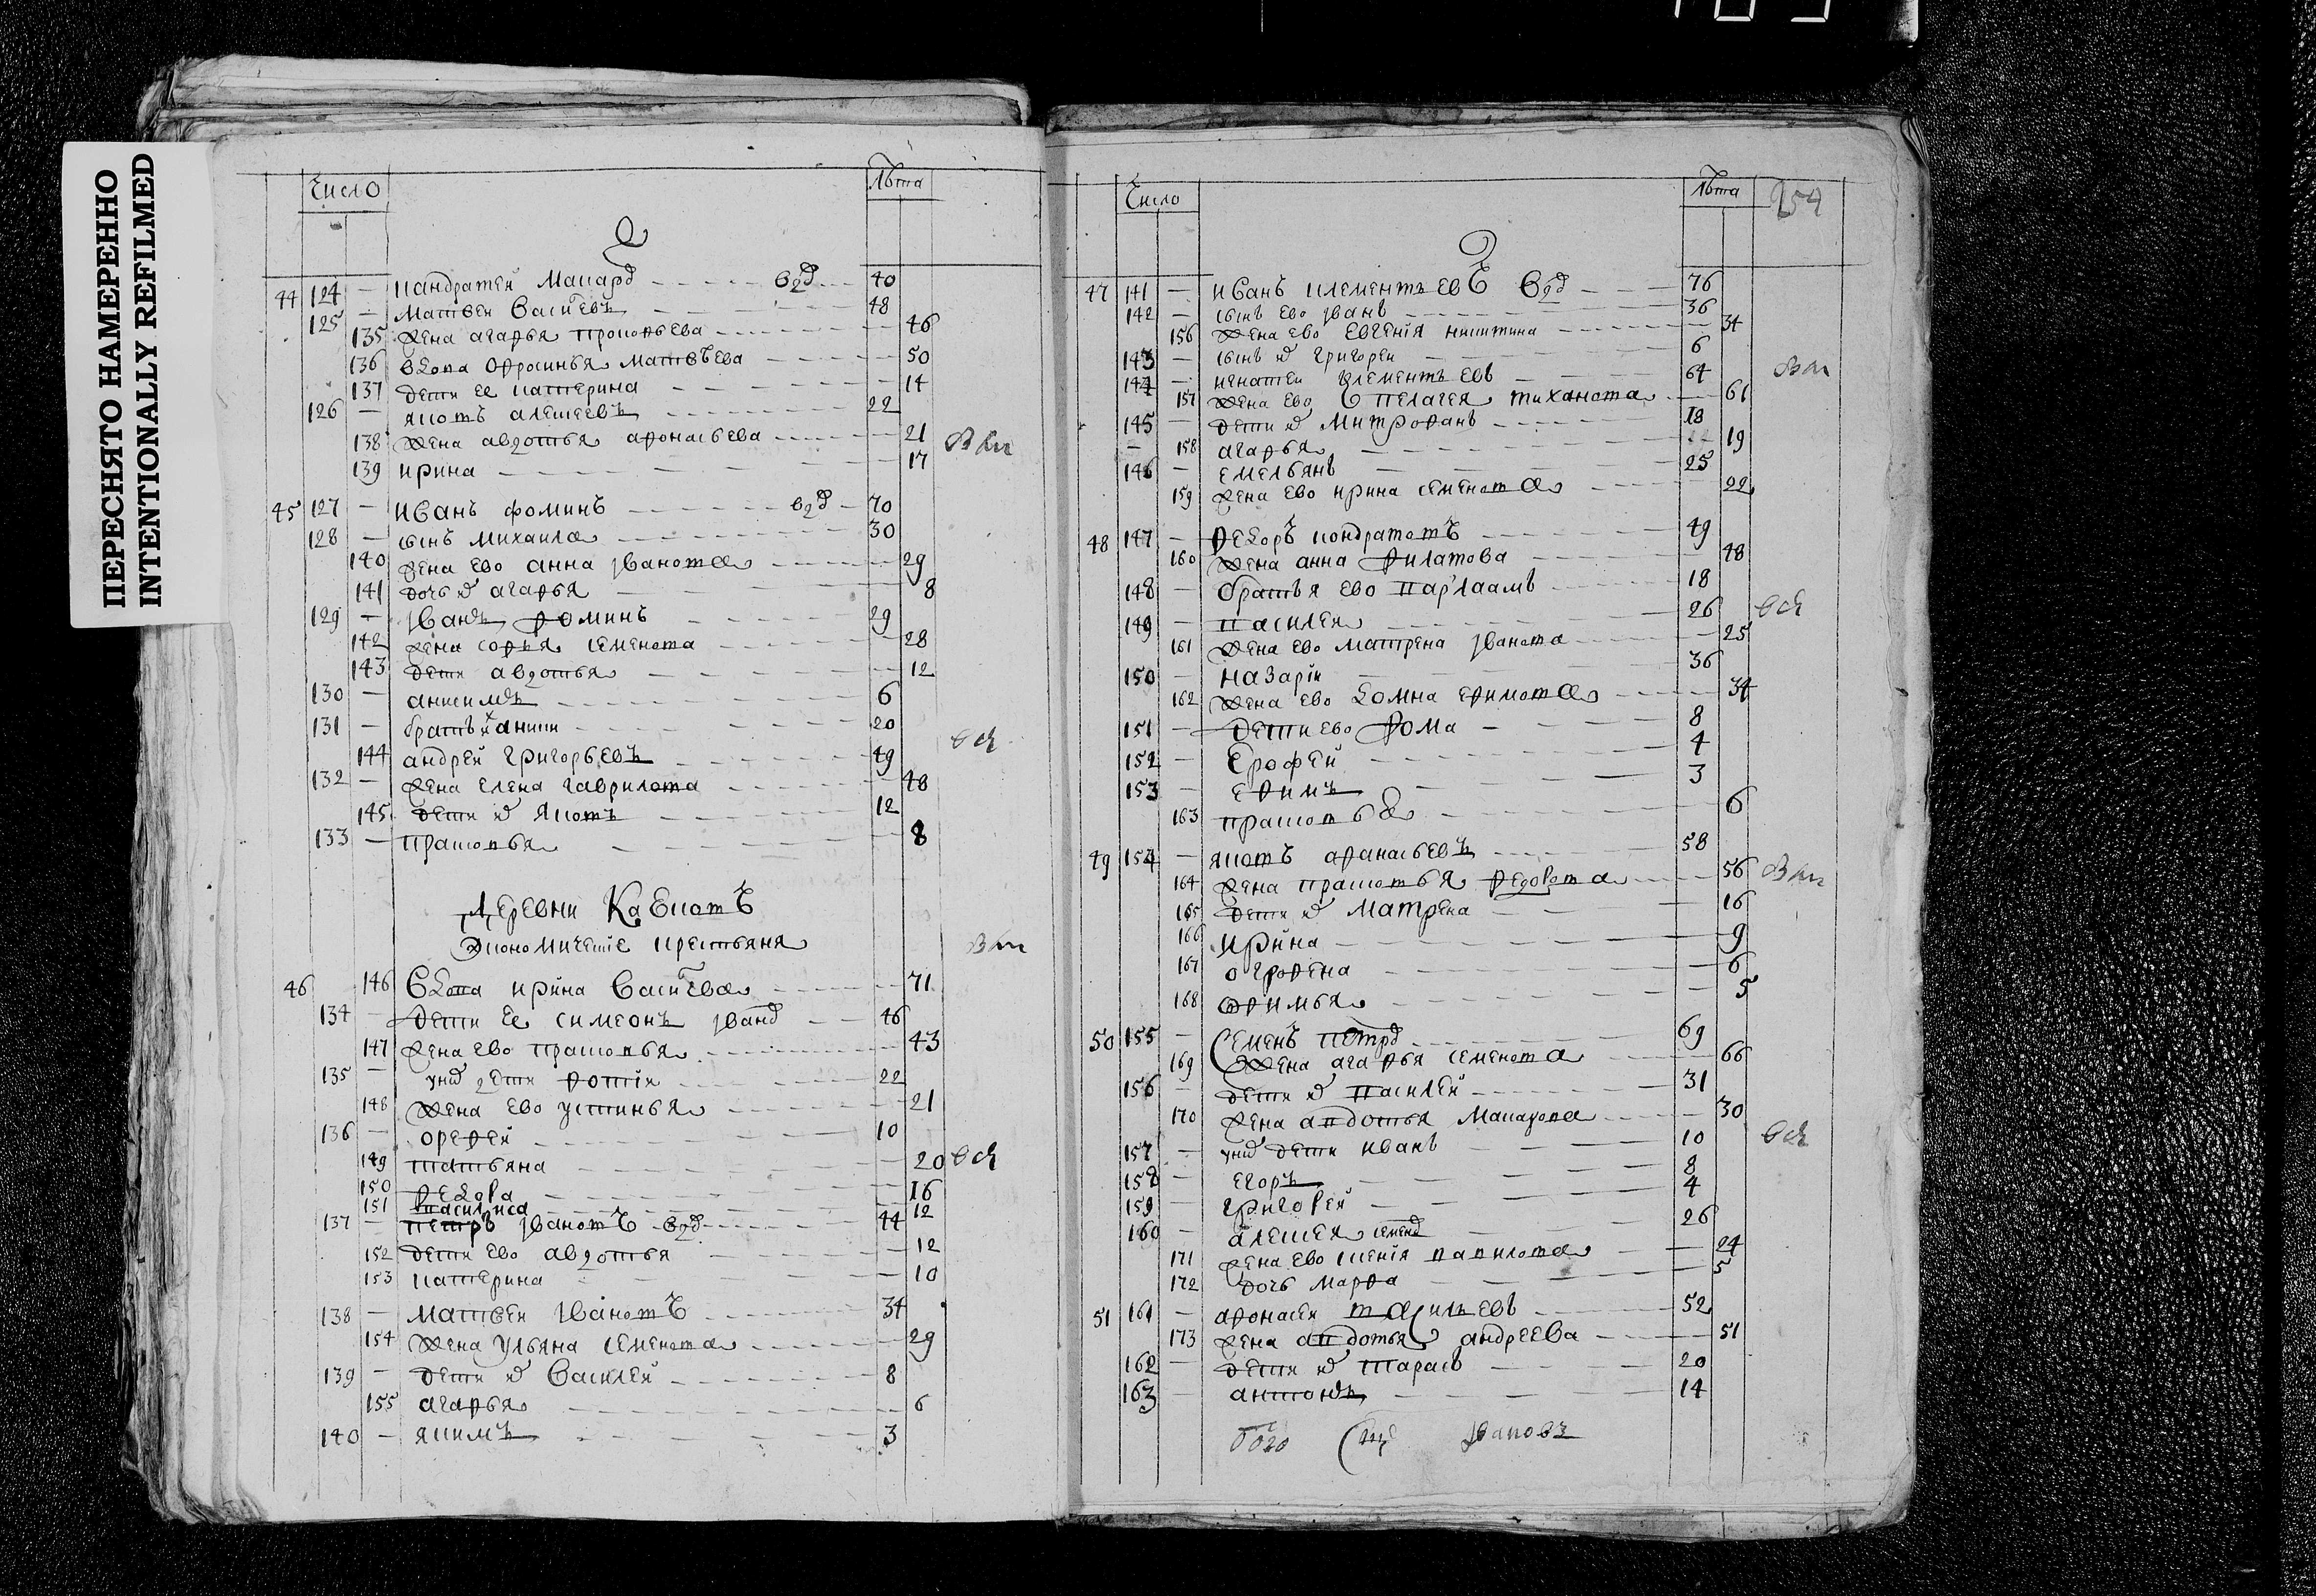 ПЕРЕСНЯТО НАМЕРЕННО
INTENTIONALLY REFILMED
Число Лѣта
44 124 — кандратей Макард вд 40
125 — Матвеи Васильевъ 48
135 жена агафья прокофьева 46
136 вдова Офросинья матвѣева 50
137 дети ее катерина 14
126 — яковъ алексеевъ 22
138 жена авдотья афонасьева 21
139 ирина 17
45 127 — иванъ фоминъ вд 70
128 — сынъ михаила 30
140 жена ево анна иванова 29
141 дочь агафья 8
129 — иванъ фоминъ 29
142 жена софья семенова 28
143 дети авдотья 12
130 — анисимъ 6
131 — братъ 20
144 андрей григорьевъ 49
132 — жена елена гаврилова 48
145 дети яковъ 12
133 — прасковья 8
Деревни
Экономические крестьяня
46 146 Вдова ирина Васильева 71
134 — дети ее симеонъ иванд 46
147 жена ево прасковья 43
135 — дети фотiи 22
148 жена ево устинья 21
136 — орефей 10
149 татьяна 20
150 федора 16
151 василиса 12
137 — петръ ивановъ вд 44
152 дети ево авдотья 12
153 катерина 10
138 — матвеи ивановъ 34
154 жена ульяна семенова 29
139 — дети Василей 8
155 агафья 6
140 — якимъ 3
Число Лѣта 254
47 141 — иванъ клементьевъ вд 76
142 — сынъ ево иванъ 36
156 жена ево евгенiя никитина 34
143 — сынъ григореи 6
144 — игнатеи клементьевъ 64
157 жена ево пелагея 61
145 — дети митрофанъ 18
158 агафья 19
146 — емельянъ 25
159 жена ево ирина семенова 22
48 147 — федоръ кондратовъ 49
160 жена анна филатова 48
148 — братья ево варлаамъ 18
149 — василея 26
161 жена ево матрена иванова 25
150 — назарiи 36
162 жена ево домна ефимова 34
151 — дети ево фома 8
152 — Ерофѣй 4
153 — ефимъ 3
163 прасковья 6
49 154 — яковъ афанасьевъ 58
164 жена прасковья федорова 56
165 дети матрена 16
166 ирина 9
167 ографена 6
168 офимья 5
50 155 — Семенъ петрд 69
169 жена агафья семенова 66
156 — дети василей 31
170 жена авдотья макарова 30
157 — дети иванъ 10
158 — егоръ 8
159 — григорей 4
160 — алексея семенд 26
171 жена ево ксенiя вавилова 24
172 дочь марфа 5
51 161 — афонасеи васильевъ 52
173 жена авдотья андреева 51
162 — дети тарасъ 20
163 — антонъ 14
Ивановъ